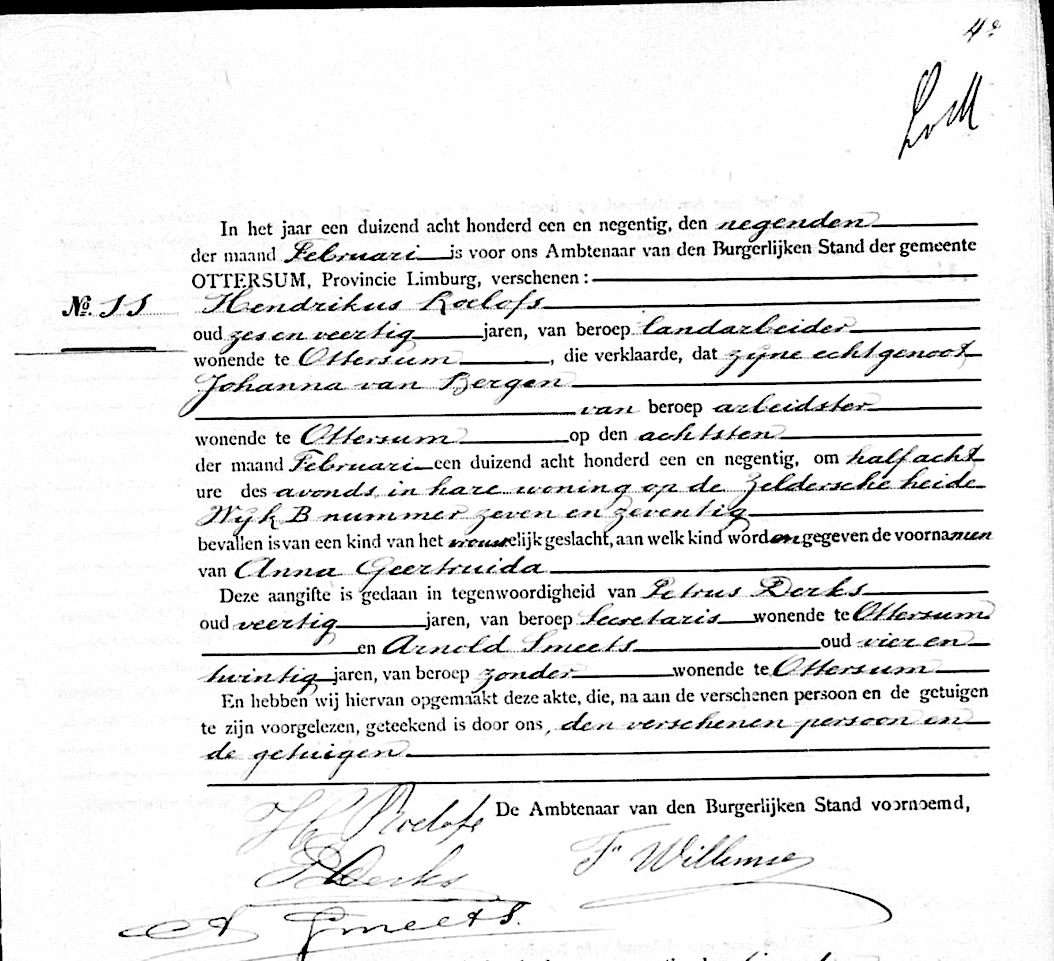 4e
In het jaar een duizend acht honderd een en negentig, den negenden
der maand Februari is voor ons Ambtenaar van den Burgerlijken Stand der gemeente
OTTERSUM, Provincie Limburg, verschenen :
No. 11 Hendrikus Roelofs
oud zes en veertig jaren, van beroep landarbeider
wonende te Ottersum, die verklaarde, dat zijne echtgenoot
Johanna van Bergen
van beroep arbeidster
wonende te Ottersum op den achtsten
der maand Februari een duizend acht honderd een en negentig, om half acht
ure des avonds in hare woning op de Zeldersche heide
Wijk B nummer zeven en zeventig
bevallen is van een kind van het vrouwelijk geslacht, aan welk kind worden gegeven de voornamen
van Anna Geertruida
Deze aangifte is gedaan in tegenwoordigheid van Petrus Derks
oud veertig jaren, van beroep Secretaris wonende te Ottersum
en Arnold Smeets oud vier en
twintig jaren, van beroep zonder wonende te Ottersum
En hebben wij hiervan opgemaakt deze akte, die, na aan de verschenen persoon en de getuigen
te zijn voorgelezen, geteekend is door ons, den verschenen persoon en
de getuigen
De Ambtenaar van den Burgerlijken Stand voornoemd,
H Roelofs
Fr Willemse
P Derks
A Smeets